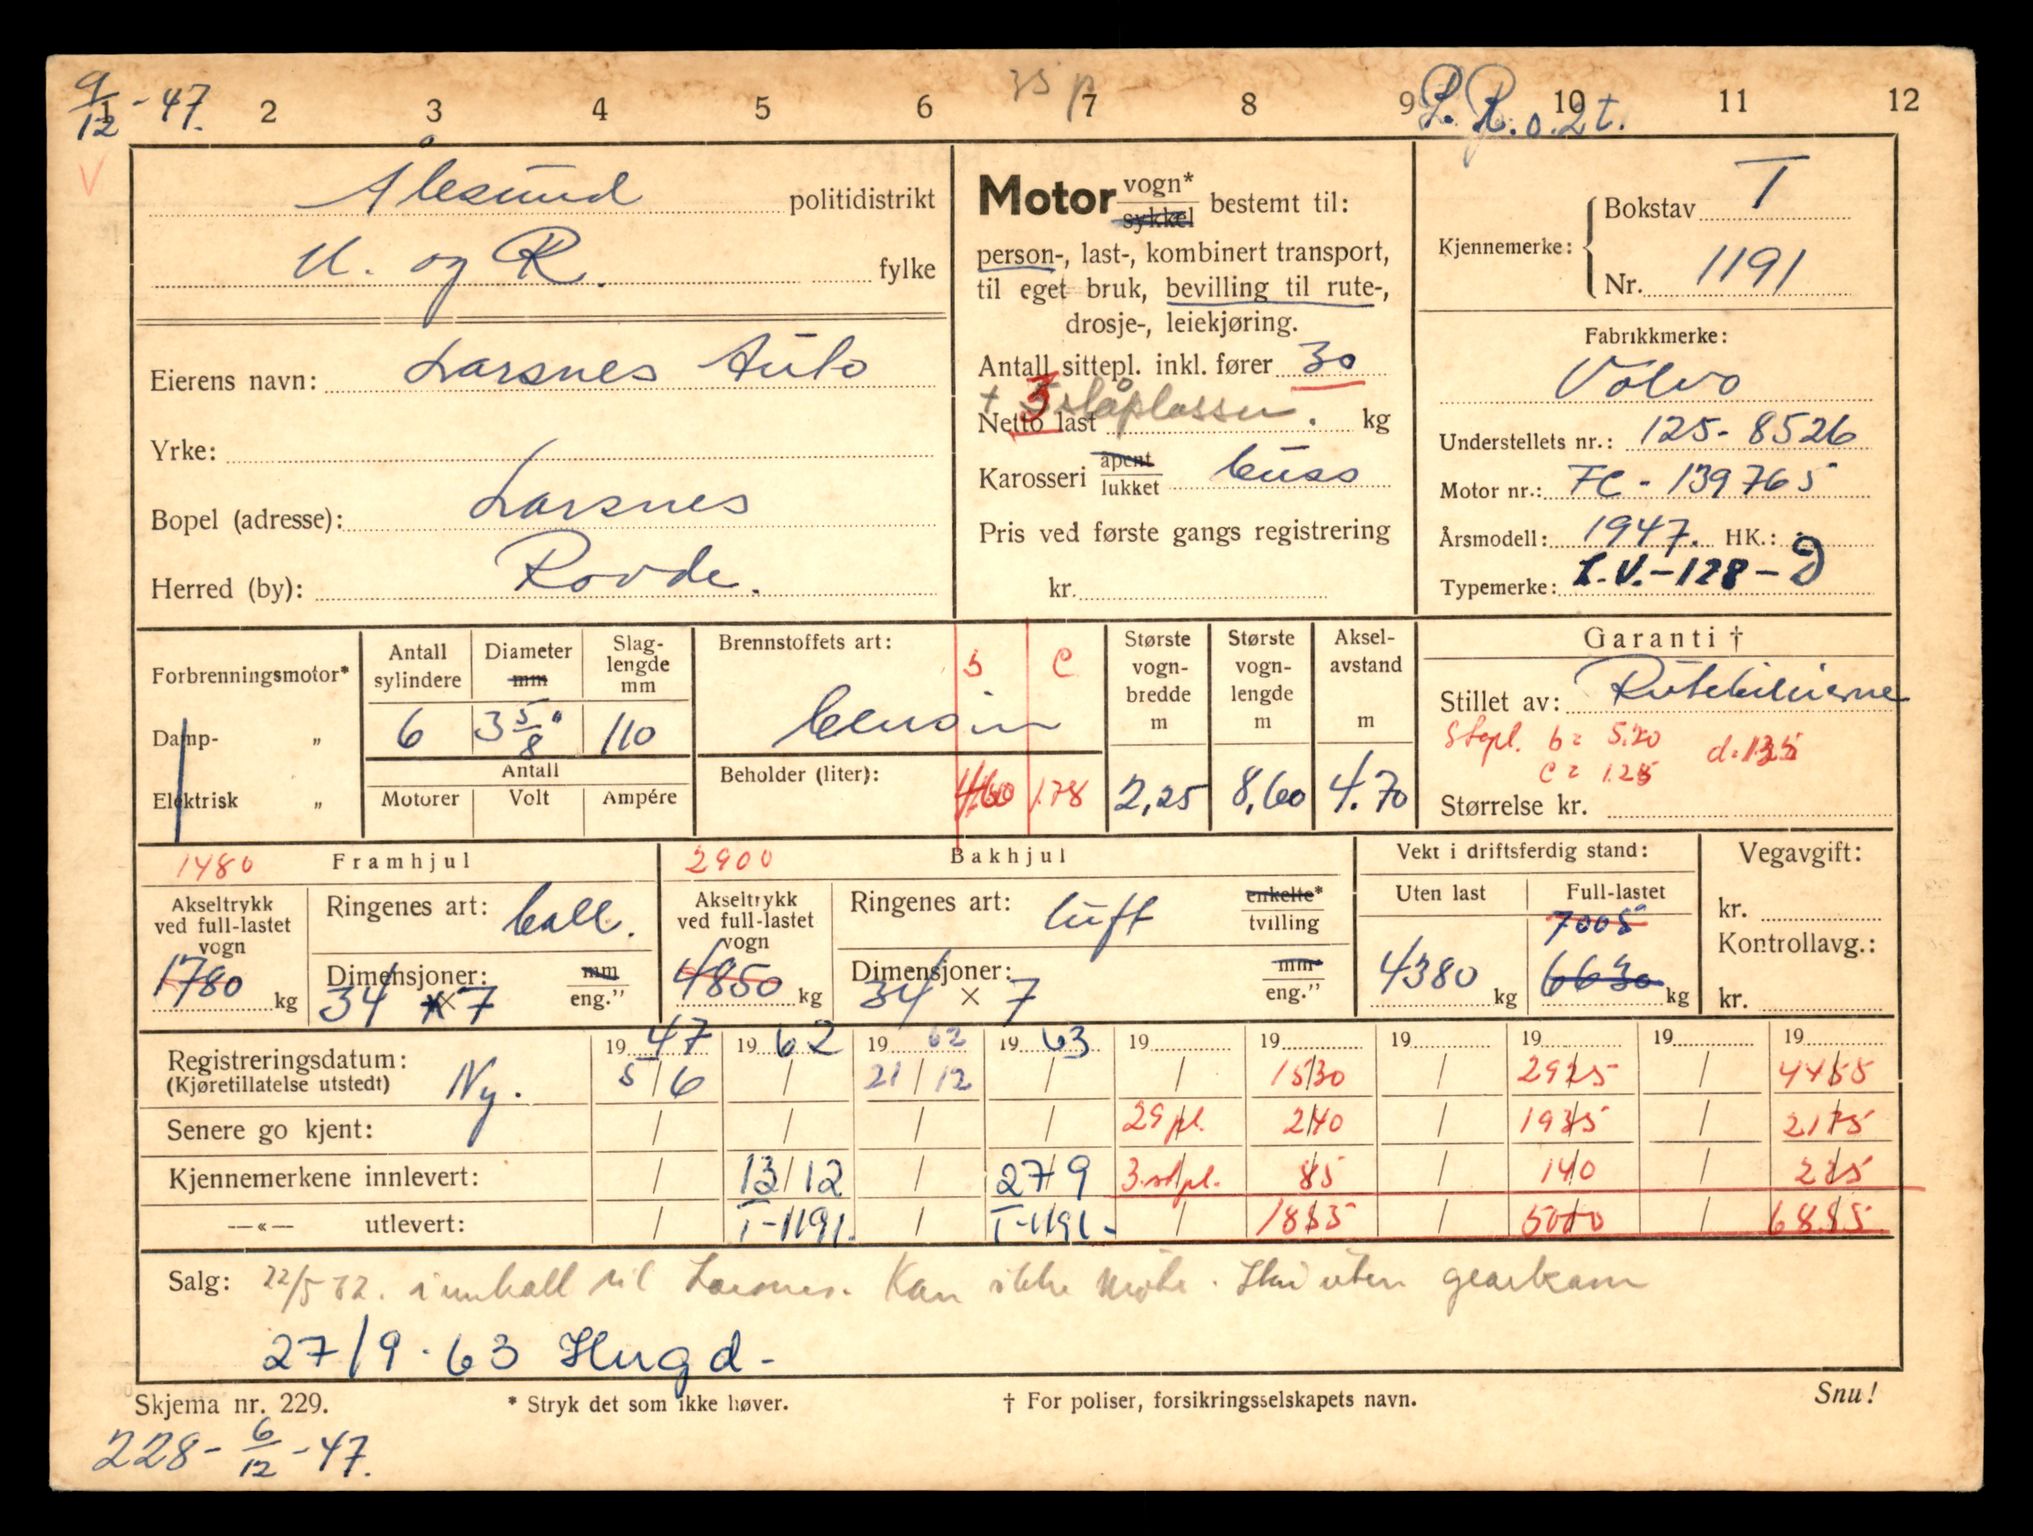 9/12-47.
1 2 3 4 5 6 7 8 9 10 11 12
35 p
L. R. o. 2t.
V
Ålesund politidistrikt
M. og R. fylke
Eierens navn: Larsnes Auto
Yrke:
Bopel (adresse): Larsnes
Herred (by): Rovde.
Motor vogn* sykkel bestemt til:
person-, last-, kombinert transport,
til eget bruk, bevilling til rute-,
drosje-, leiekjøring.
Antall sittepl. inkl. fører 30
+ 3 ståplasser.
Netto last kg
Karosseri åpent lukket buss
Pris ved første gangs registrering
kr.
Kjennemerke: Bokstav T
Nr. 1191
Fabrikkmerke:
Volvo
Understellets nr.: 125-8526
Motor nr.: FC-139765
Årsmodell: 1947. HK.:
Typemerke: L.V.-128-D
Forbrenningsmotor*
Damp- „
Elektrisk „
Antall sylindere 6
Diameter mm 3 5/8"
Slag-lengde mm 110
Antall
Motorer Volt Ampére
Brennstoffets art: b C
bensin
Beholder (liter): 4.60 1.78
Største vogn-bredde m 2,25
Største vogn-lengde m 8,60
Aksel-avstand m 4.70
Garanti †
Stillet av: Rutebileierne
Stopl. b = 5.20 d=1.35
c = 1.25
Størrelse kr.
1480 Framhjul
Akseltrykk ved full-lastet vogn 1780 kg
Ringenes art: ball.
Dimensjoner: mm eng.”
34 x 7
2900 Bakhjul
Akseltrykk ved full-lastet vogn 4850 kg
Ringenes art: luft enkelte* tvilling
Dimensjoner: mm eng.”
34 x 7
Vekt i driftsferdig stand:
Uten last 4380 kg
Full-lastet 7005 6630 kg
Vegavgift:
kr.
Kontrollavg.:
kr.
Registreringsdatum: 1947 1962 1962 1963 19 19 19 19 19 19
(Kjøretillatelse utstedt) Ny. 5/6 / 21/12 / / 1530 / 2925 / 4455
Senere go kjent: / / / / 29 pl. 240 / 1935 / 2175
Kjennemerkene innlevert: / 13/12 / 27/9 3 stpl. 85 / 140 / 225
—«— utlevert: / T-1191. T-1191- / 1855 / 5000 / 6855
Salg: 22/5 62. innkall til Larsnes. Kan ikke møte. uten
27/9.63 Hugd-
Skjema nr. 229.
* Stryk det som ikke høver.
† For poliser, forsikringsselskapets navn.
Snu!
228-6/12-47.